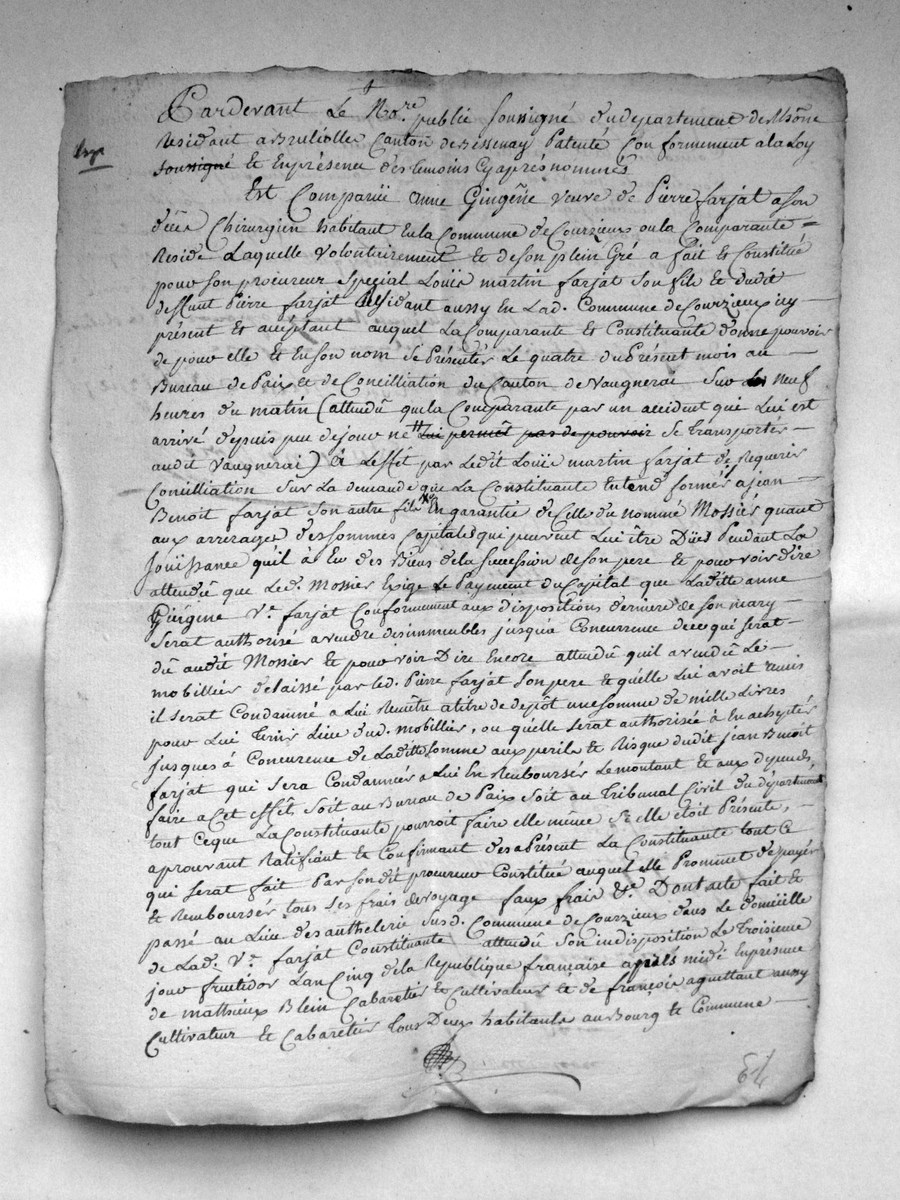 Pardevant Le No.re public Soussigné du département du Rhône
Residant a Brullolle Canton de Bessenay Patenté Conformement a la Loy
Soussigné et En présence des temoins Cy après nommés
Est Comparüe anne Giugêne veuve de Pierre farjat a son
déces Chirurgien habitant En la Commune de Courzieux ou la Comparante =
Reside Laquelle volontairement et de son plein Gré a fait et Constitué
pour Son procureur Special Loüis martin farjat Son fils et dudit
deffunt Pierre farjat Résidant aussy En Lad. Commune de Courzieux icy
présent et acceptant auquel La Comparante et Constituante donne pouvoir
de pour elle et En Son nom Se Présenter Le quatre du Présent mois au
Bureau de Paix et de Concilliation du Canton de Vaugnerai Sur les neuf
heures du matin (attendû que la Comparante par un accident qui Lui est
arrivé depuis peu de jour ne Lui permêt pas de pouvoir Se transporter
audit Vaugnerai) à L'effét par Ledit Loüis martin farjat de Requerir
Concilliation Sur La demande que La Constituante Entend formér a jean
Benoit farjat Son autre fils En garantie de Celle du nommé Mossier quant
aux arrerages des Sommes Capitales qui peuvent Lui être Dües Pendant La
Joüissance qu'il à Eu des Biens de la Succession de Son pere et pouvoir dire
attendû que Led. Mossier Exige Le Payement du Capital que Laditte anne
Giugêne V.e farjat Conformement aux dispositions derniere de Son mary
Serat authorisé a vendre des immeubles jusqu'a Concurrence de ce qui Serat
dû audit Mossier et pouvoir Dire Encore attendû qu'il a vendû Le
mobillier delaissé par led. Pierre farjat Son pere et qu'elle Lui avoit remis
il Serat Condamné a Lui Remêttre a titre de dépôt une Somme de mille Livres
pour Lui tenir Lieu dud. mobillier, ou qu'elle Serat authorisée à En achepter
jusques à Concurence de Laditte Somme aux perils et Risque dudit jean Benoit
farjat qui Sera Condamnér a Lui En Remboursér Le montant et aux depends,
faire a Cet effêt Soit au Bureau de Paix Soit au Tribunal Civil du département
tout Ceque La Constituante pourroit faire elle même Si elle étoit Présente,
aprouvant Ratifiant et Confirmant des a Présent La Constituante tout Ce
qui Serat fait Par Son dit procureur Constitué auquel elle Prommet de payer
et Remboursér tous Ses frais de voyage faux frais &.a Dont acte fait et
passé au Lieu des authelerie Susd. Commune de Courzieux dans Le domicille
de Lad.e V.e farjat Constituante attendû Son indisposition Le troisieme
jour fructidor L'an Cinq de la Republique française après midi En présence
de mathieux Blein Cabaretier et Cultivateur et de françois aguettant aussy
Cultivateur et Cabaretier tous Deux habitants au Bourg et Commune